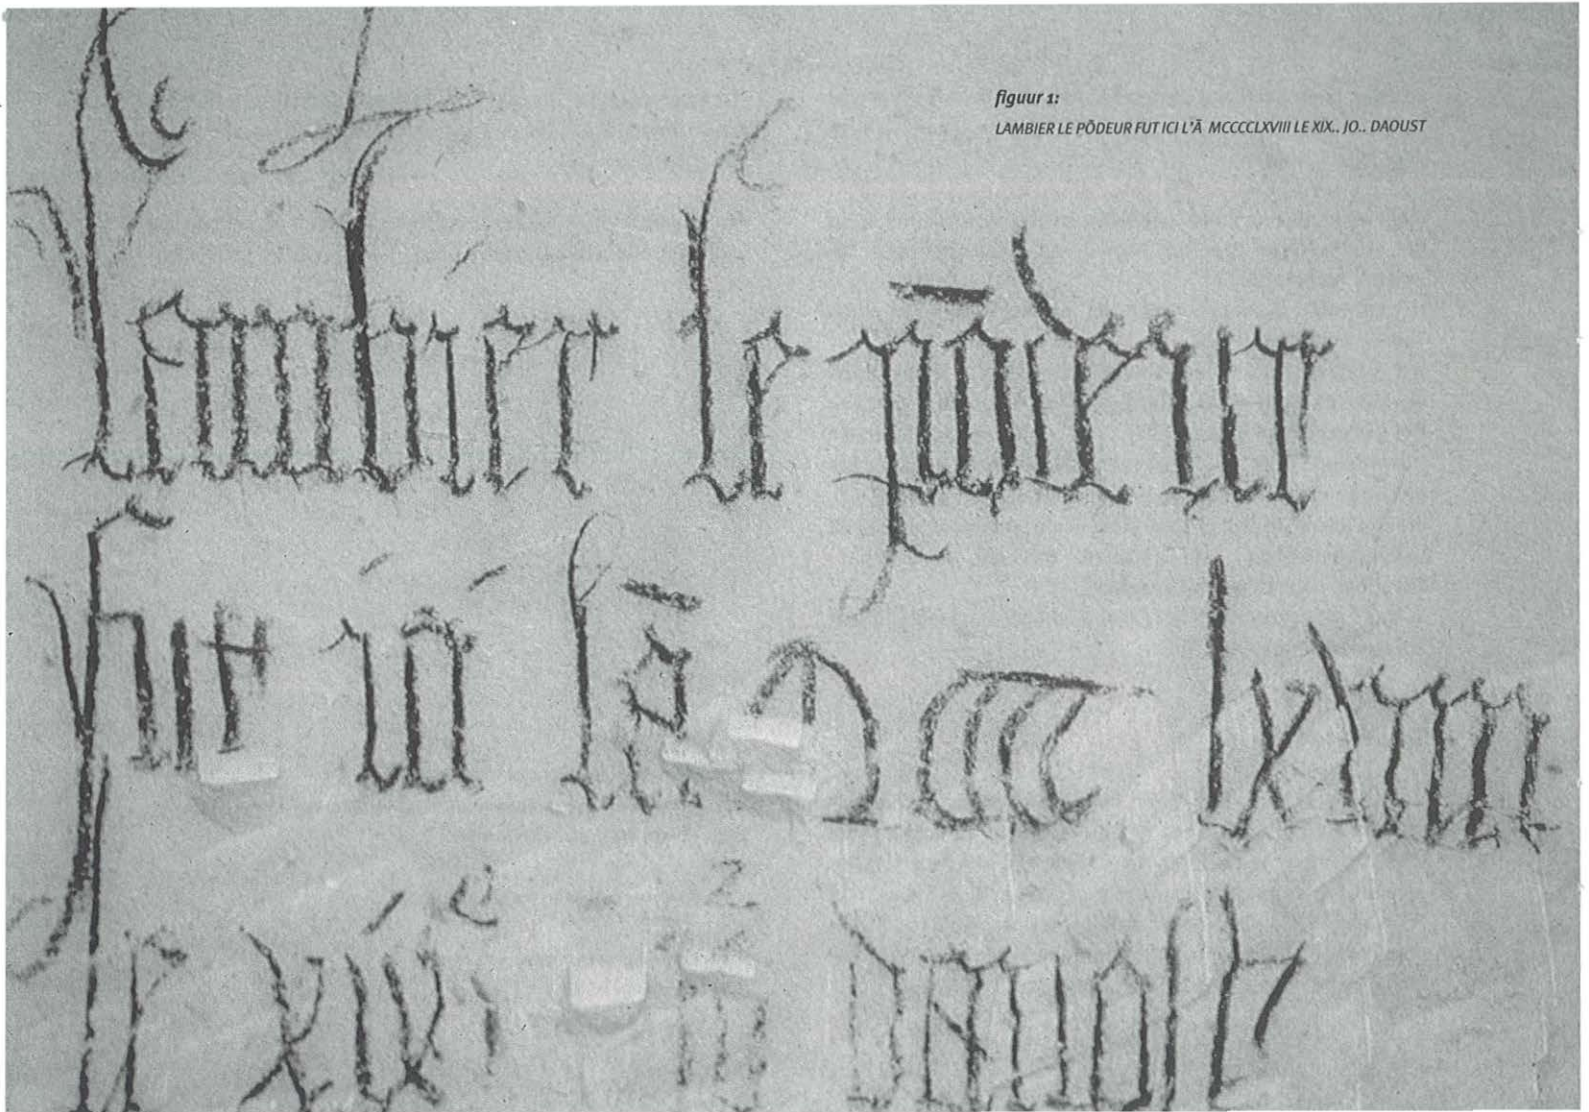 figuur 1:
LAMBIER LE PŌDEUR FUT ICI L'Ā MCCCCLXVIII LE XIX.. JO.. DAOUST
lambier le pōdeur
fut ici lā Mcccc lxviii
le xix daoust